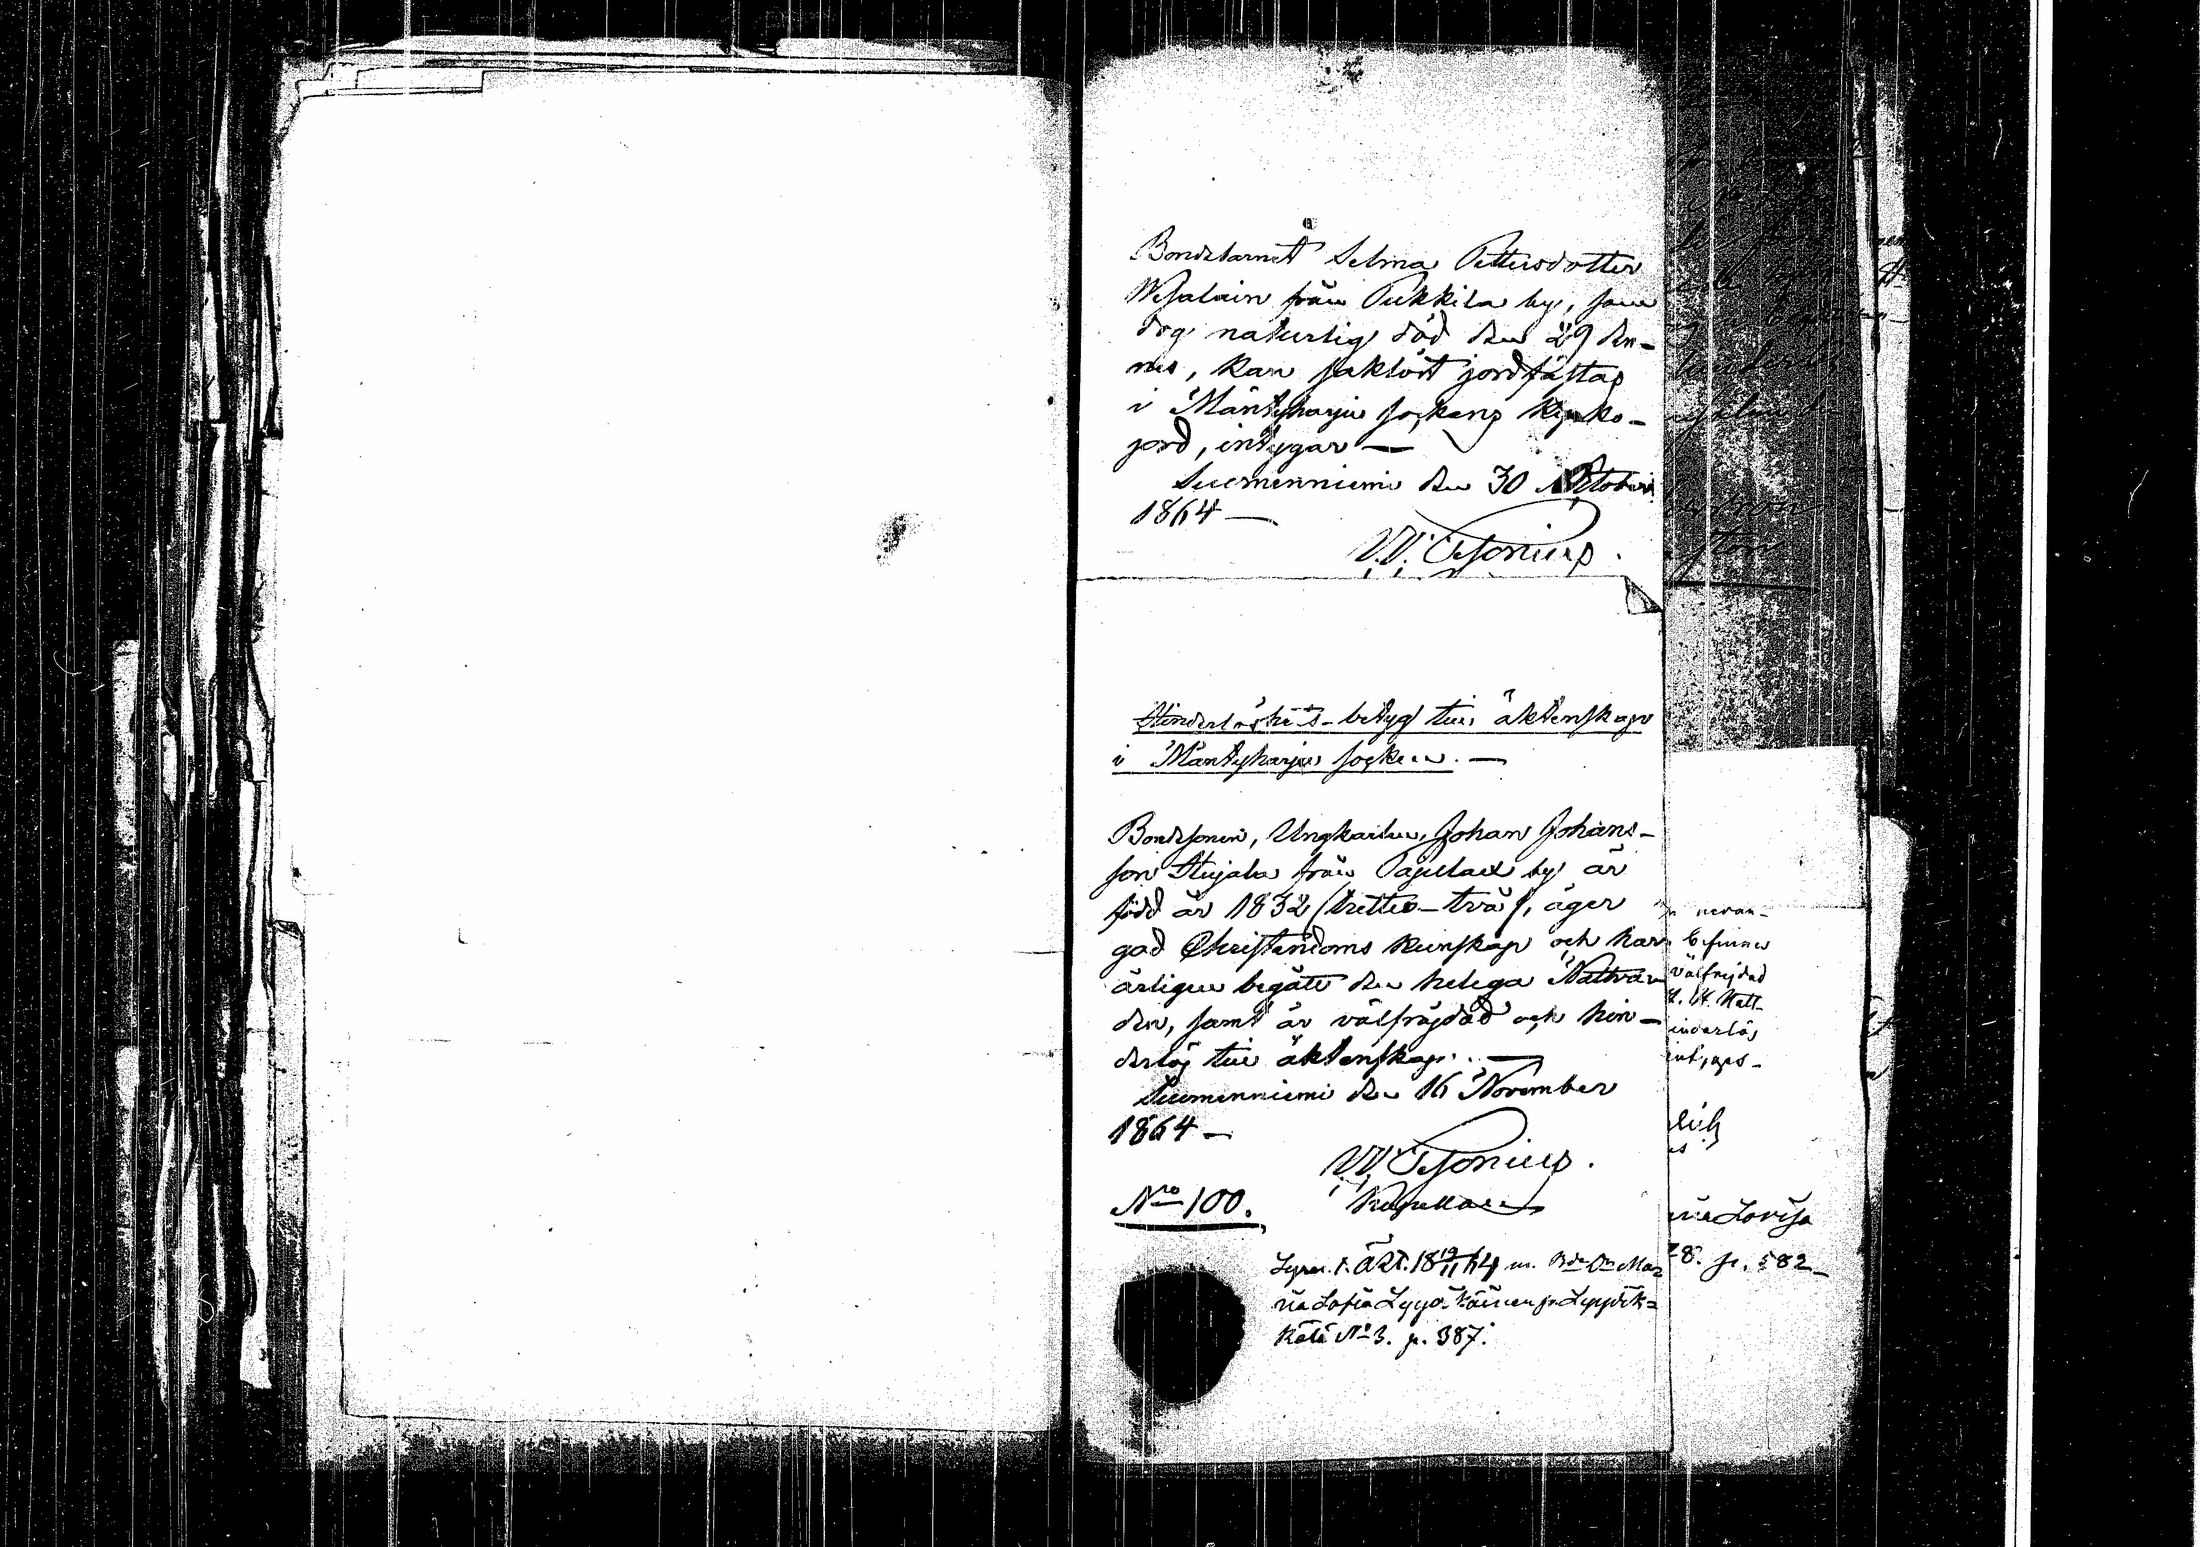 Bondebarnet Selma Pettersdotter
Wesalain från Pukkila by, som
dog naturlig död den 29 den-
nes, kan saklöst jordfästas
i Mäntyharju sockens kyrko-
jord, intygar —
Suomenniemi den 30 Oktober
1864 —
W. Cesonius.
Hinderlöshets-betyg till äktenskap
i Mäntyharju socken. —
Bondesonen, Ungkarlen, Johan Johans-
son Hujala från Pajulax by är
född år 1832 (trettio-två), äger
god Christendoms kunskap och har
ärligen begått den heliga Nattvar
den, samt är välfräjdad och hin-
derlös till äktenskap. —
Suomenniemi den 16 November
1864 —
W. Cesonius.
Kapellan
No 100.
Lyst t. äkt. 18 19/11 64 m. Bde Dn Mar
ia Sofia Lyytikäinen fr Lyytik=
kälä No 3. p. 387.
befinnes
välfrejdad
H. H. Natt-
inderlös
Lovisa
28. p. 582_